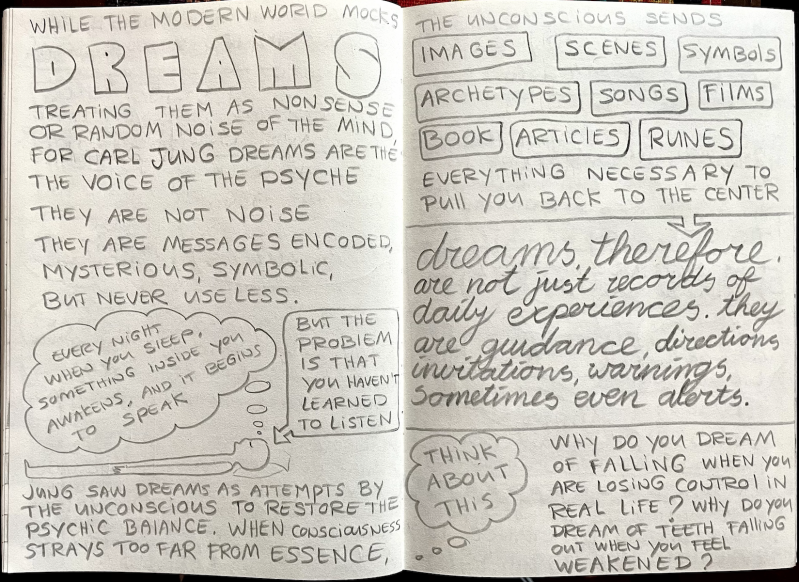 WHILE THE MODERN WORLD MOCKS
DREAMS
TREATING THEM AS NONSENSE
OR RANDOM NOISE OF THE MIND,
FOR CARL JUNG DREAMS ARE THE
THE VOICE OF THE PSYCHE
THEY ARE NOT NOISE
THEY ARE MESSAGES ENCODED,
MYSTERIOUS, SYMBOLIC,
BUT NEVER USELESS.
EVERY NIGHT
WHEN YOU SLEEP,
SOMETHING INSIDE YOU
AWAKENS, AND IT BEGINS
TO SPEAK
BUT THE
PROBLEM
IS THAT
YOU HAVEN'T
LEARNED
TO LISTEN
JUNG SAW DREAMS AS ATTEMPTS BY
THE UNCONSCIOUS TO RESTORE THE
PSYCHIC BALANCE. WHEN CONSCIOUSNESS
STRAYS TOO FAR FROM ESSENCE,
THE UNCONSCIOUS SENDS
IMAGES SCENES SYMBOLS
ARCHETYPES SONGS FILMS
BOOK ARTICLES RUNES
EVERYTHING NECESSARY TO
PULL YOU BACK TO THE CENTER
dreams, therefore,
are not just records of
daily experiences. they
are guidance, directions
invitations, warnings,
sometimes even alerts.
THINK
ABOUT
THIS
WHY DO YOU DREAM
OF FALLING WHEN YOU
ARE LOSING CONTROL IN
REAL LIFE? WHY DO YOU
DREAM OF TEETH FALLING
OUT WHEN YOU FEEL
WEAKENED?